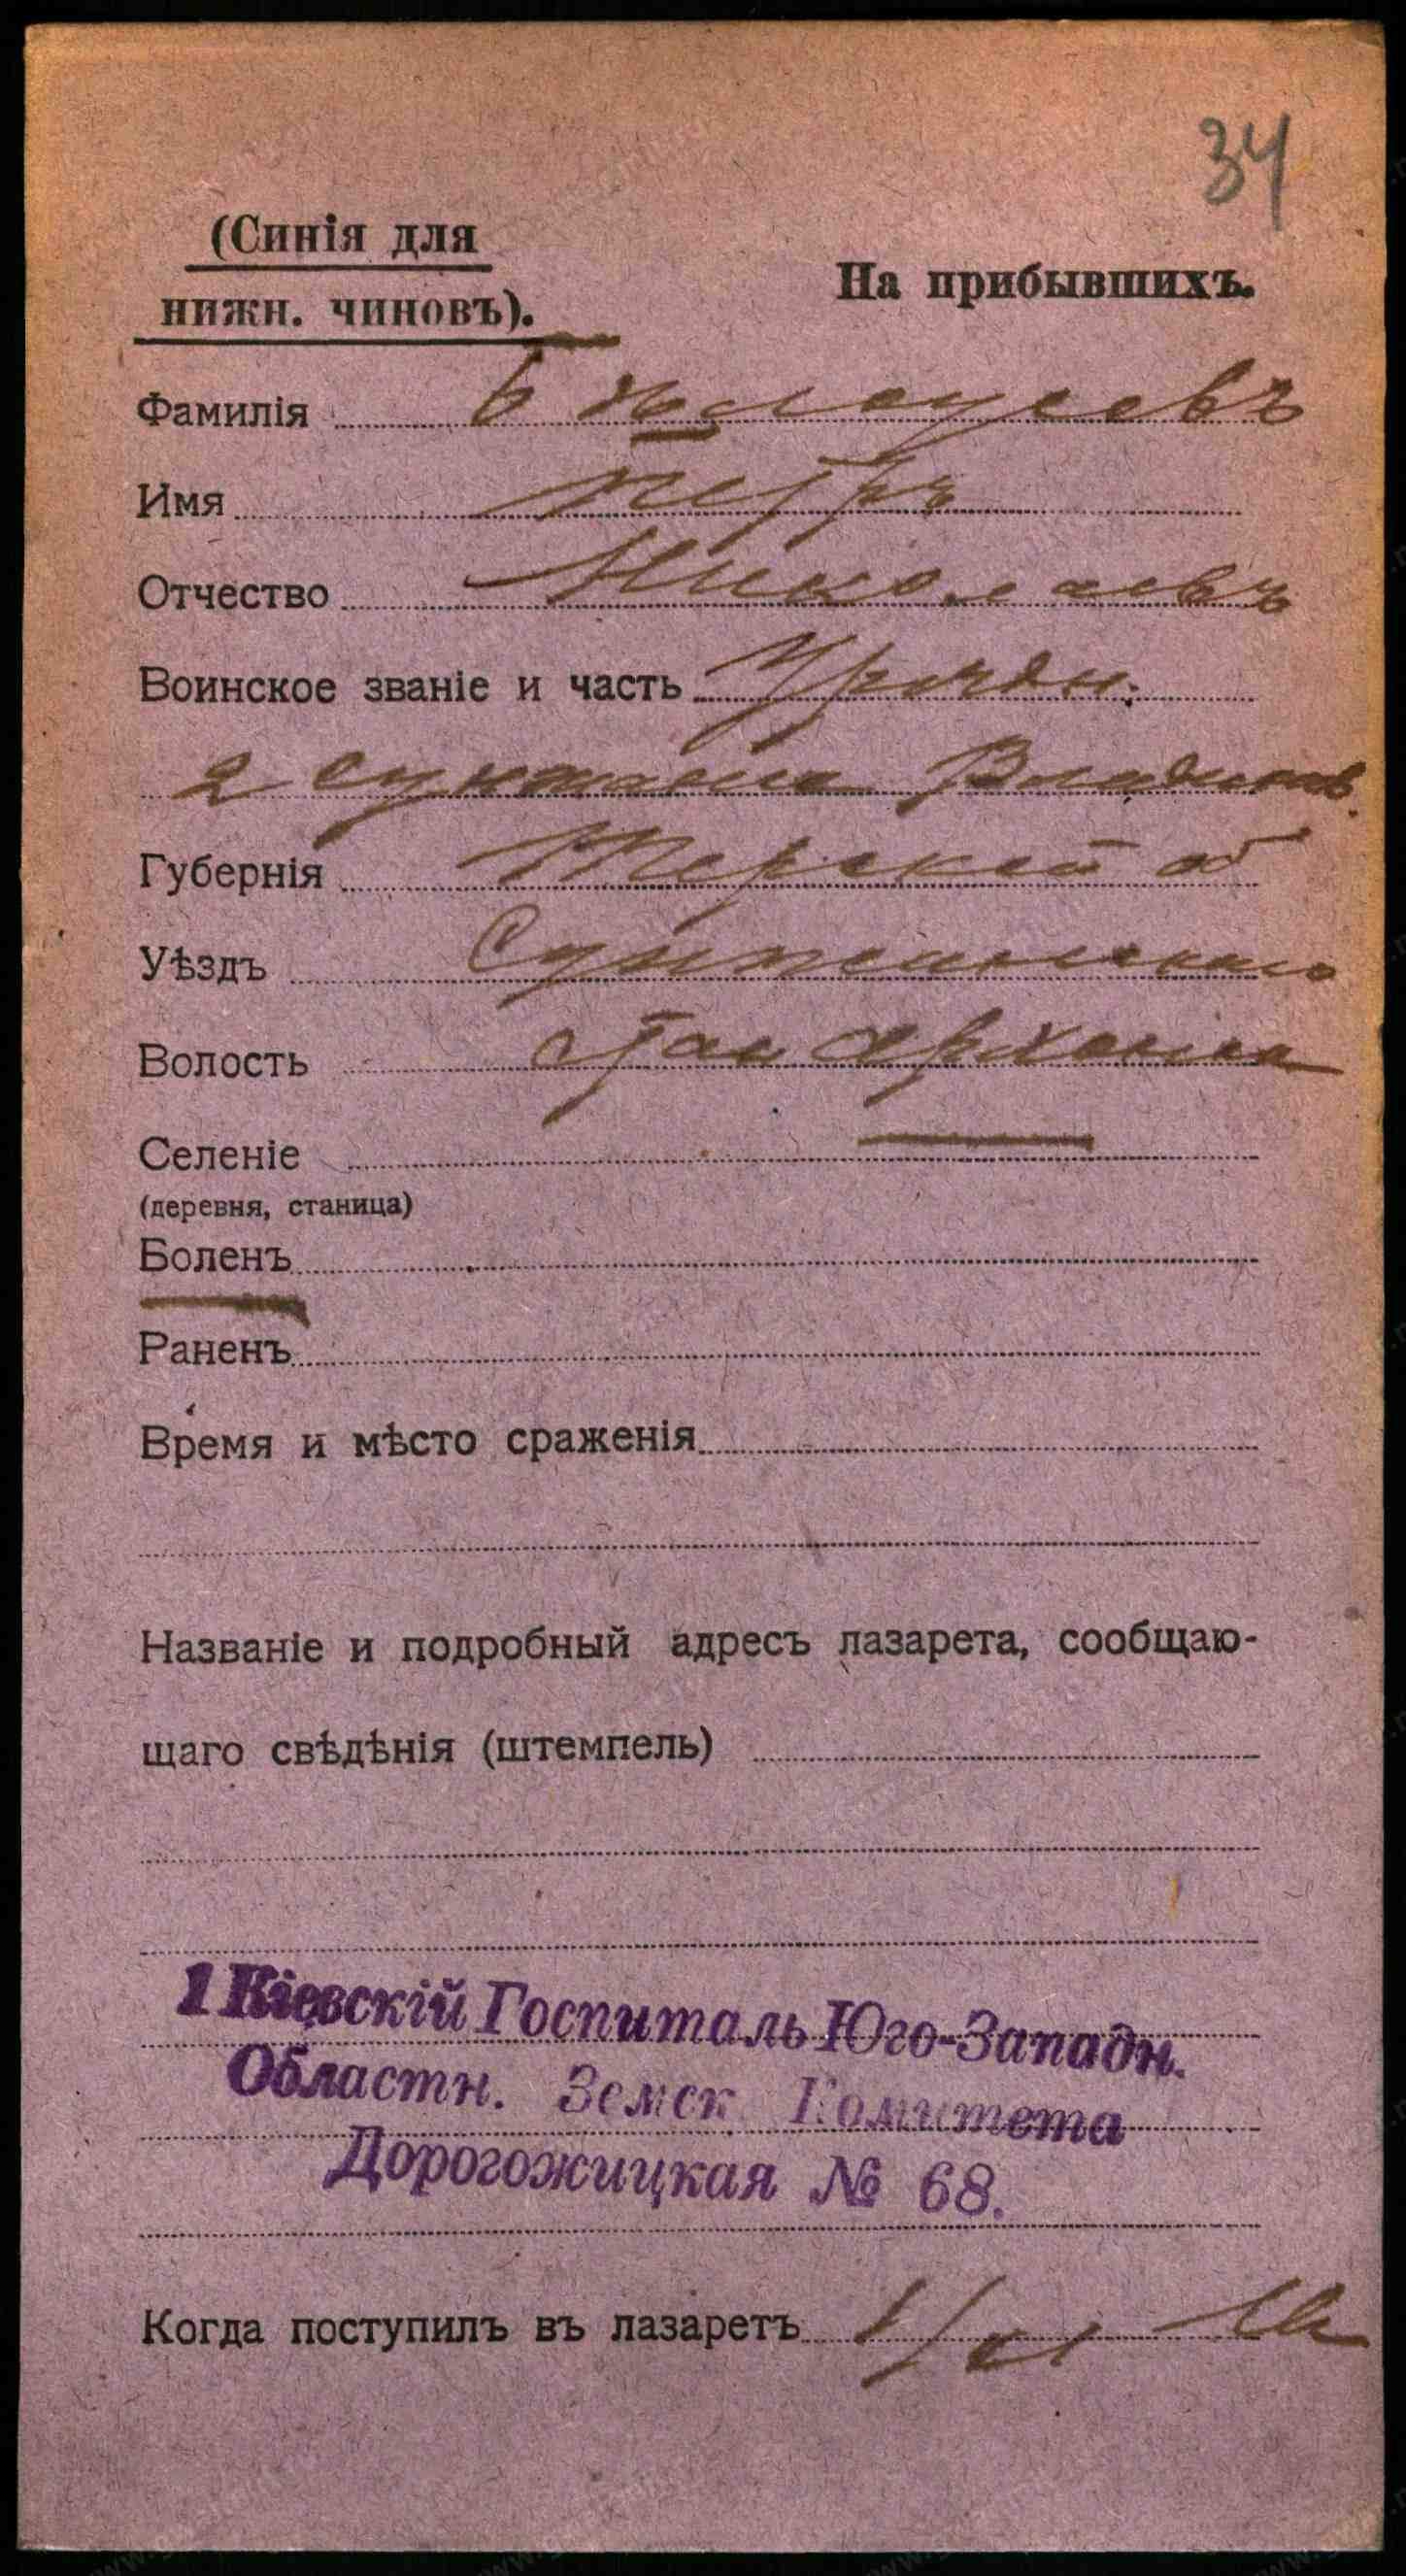 34
(Синія для
нижн. чиновъ).
На прибывшихъ.
Фамилія
Имя Петръ
Отчество Николаевъ
Воинское званіе и часть Урядн.
2 Сунженс. Владикав.
Губернія Терской об
Уѣздъ Сунженского
Волость стан Архонка
Селеніе
(деревня, станица)
Боленъ
Раненъ
Время и мѣсто сраженія
Названіе и подробный адресъ лазарета, сообщаю-
щаго свѣдѣнія (штемпель)
1 Кіевскій Госпиталь Юго-Западн.
Областн. Земск Комитета
Дорогожицкая № 68.
Когда поступилъ въ лазаретъ